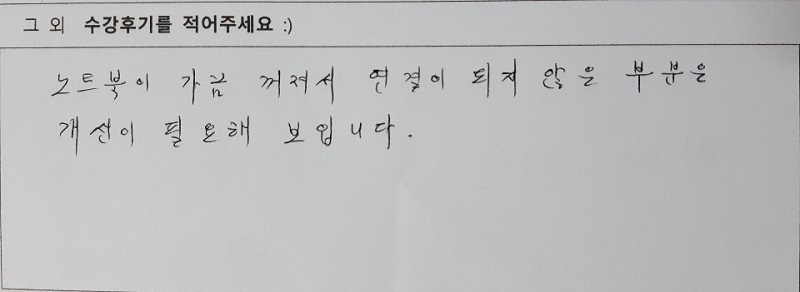 그 외 수강후기를 적어주세요 :)
노트북이 가끔 꺼져서 연결이 되지 않은 부분은
개선이 필요해 보입니다.